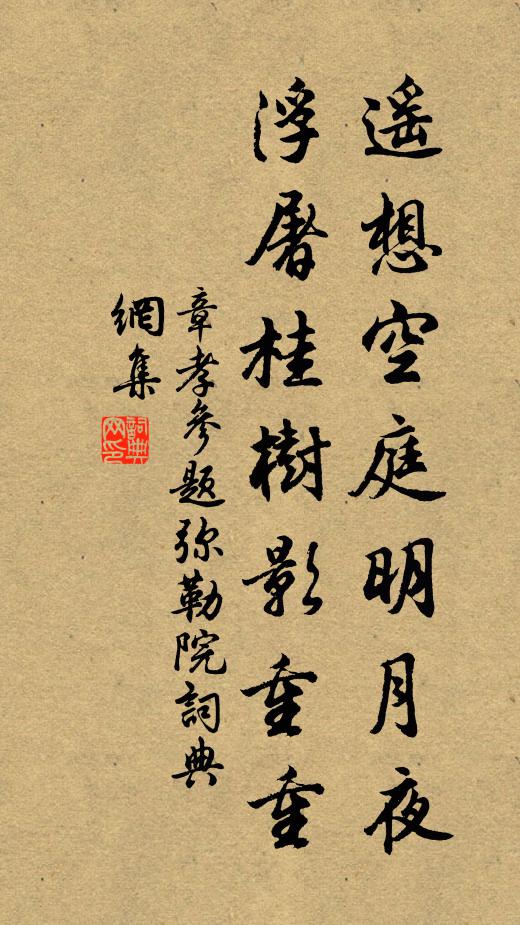 遥想空庭明月夜
浮屠桂樹影重重
章孝參題弥勒院詞典
網集
詞典
网印